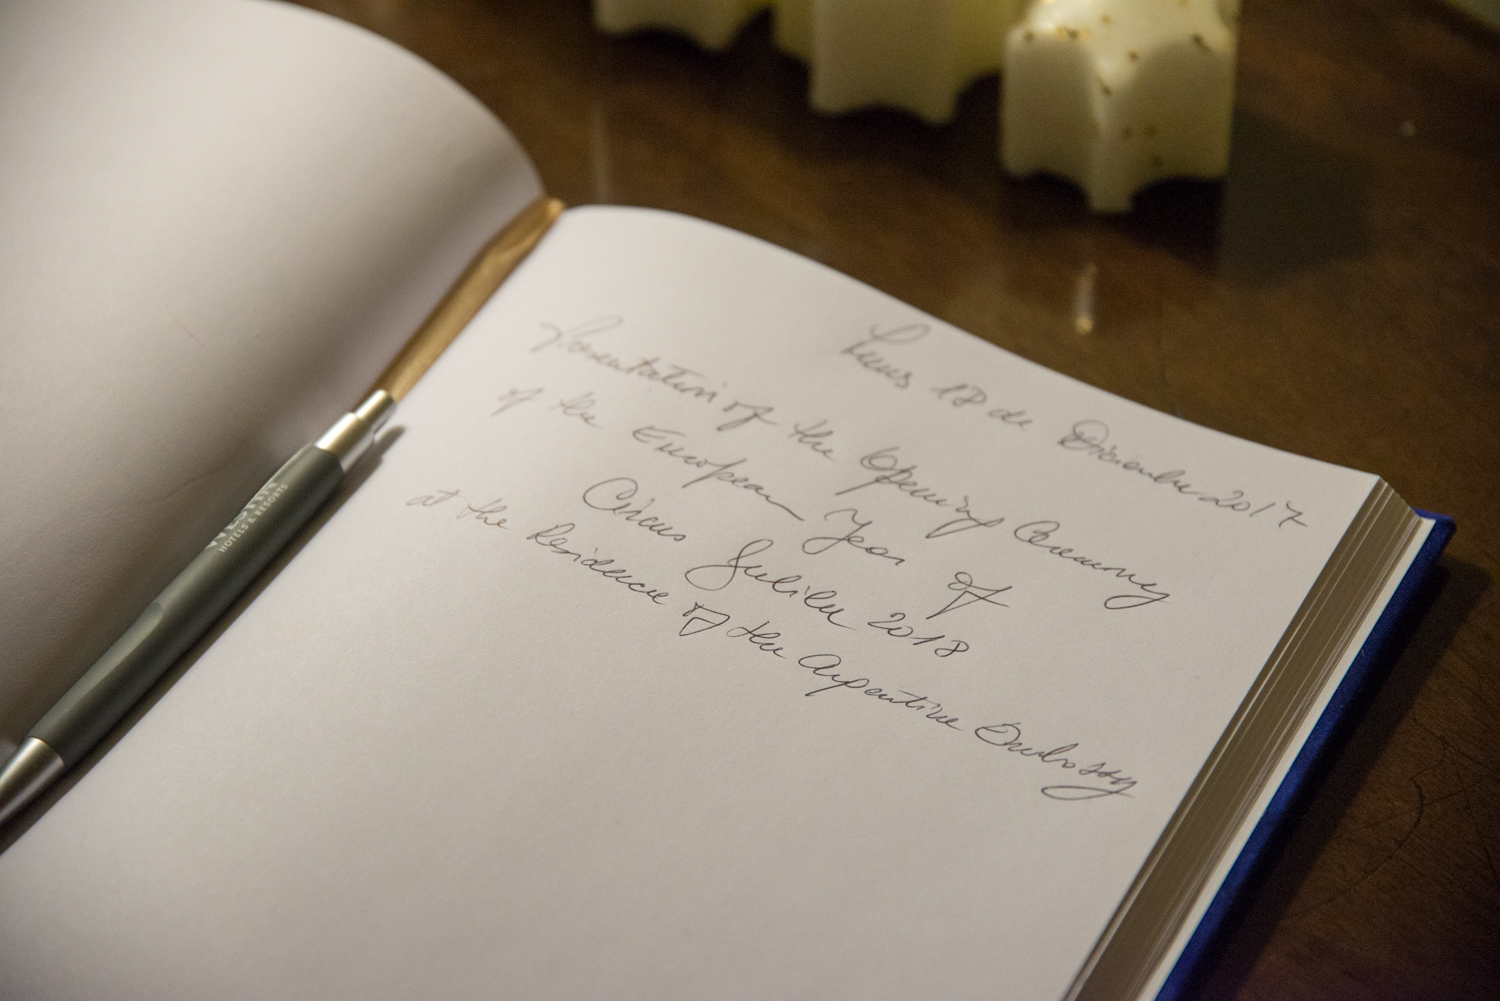 Lunes 18 de Diciembre 2017
Presentation of the Opening Ceremony
of the European Year of
Circus Jubilee 2018
at the Residence of the Argentine Embassy
WESTIN
HOTELS & RESORTS